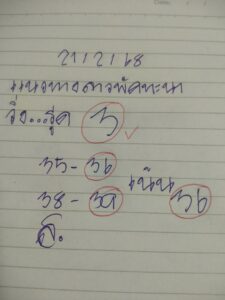 21/2/68
แนวทางลาวพัฒนา
วิ่ง...รูด 3
35-36
38-39 เน้น 36